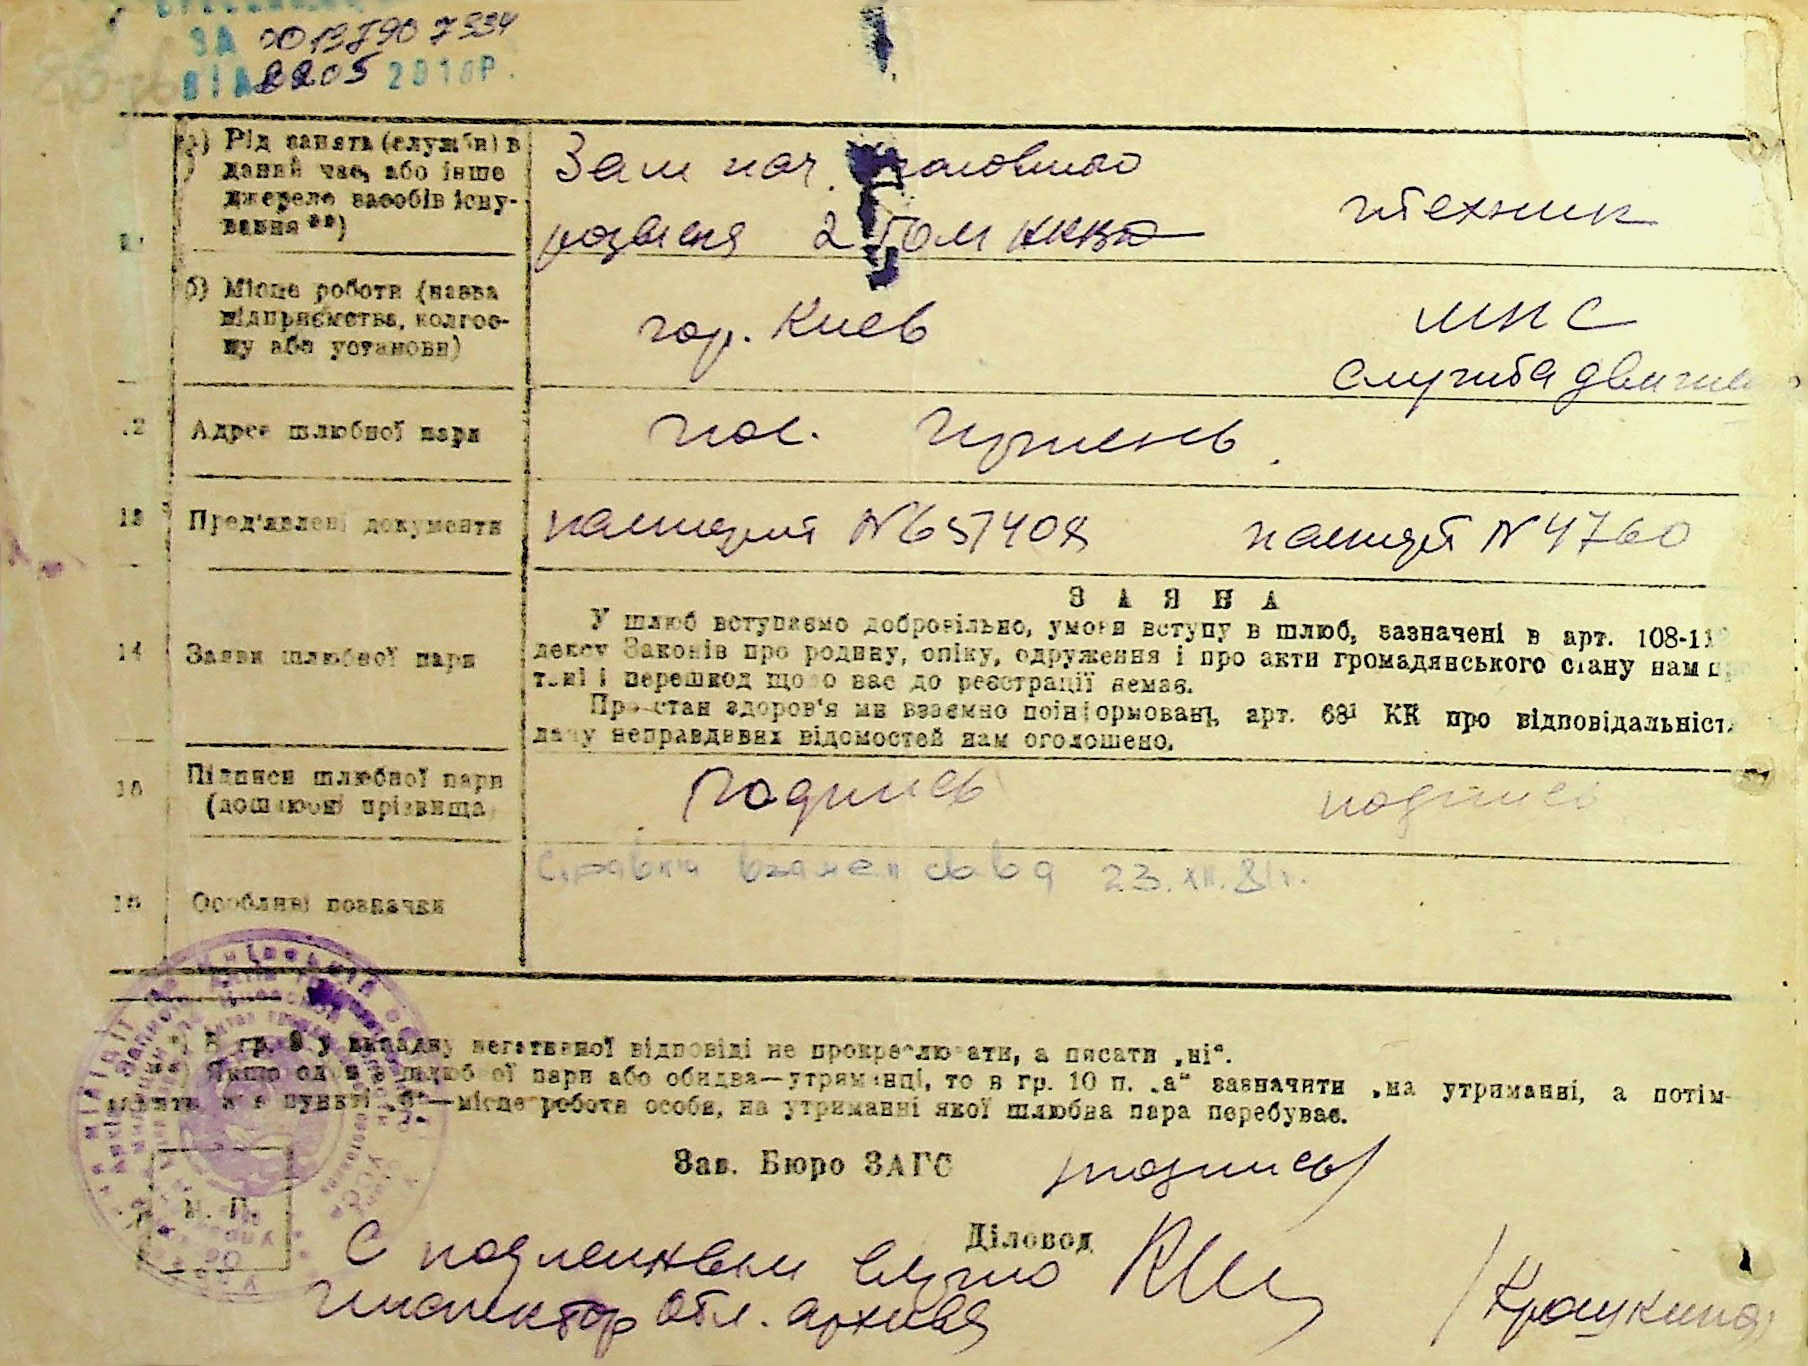 ЗА 00137907334
ВІД 2205 2018Р.
а) Рід занять (служби) в
даний час, або інше
джерело засобів існу-
вання **)
Зам нач. головного
2 том
техник
б) Місце роботи (назва
підприємства, колгос-
пу або установи)
гор. Киев
МПС
служба движе
12 Адрес шлюбної пари
пос. Ирпень
13 Пред'явлені документи
паспорт N 657408
паспорт N 4760
14 Заяви шлюбної пари
ЗАЯВА
У шлюб вступаємо добровільно, умови вступу в шлюб, зазначені в арт. 108-11
дексу Законів про родину, опіку, одруження і про акти громадянського стану нам
і перешкод щодо нас до реєстрації немає.
Про стан здоров'я ми взаємно поінформовані, арт. 68¹ КК про відповідальніст
дачу неправдивих відомостей нам оголошено.
15 Підписи шлюбної пари
(дошлюбні прізвища)
подпись
подпись
Справка взамен св-ва 23.XII.81г.
16 Особливі позначки
*) В гр. 9 у випадку негативної відповіді не прокреслювати, а писати „ні“.
**) Якщо один з шлюбної пари або обидва—утриманці, то в гр. 10 п. „а“ зазначити „на утриманні, а потім
в пункті „б“—місце роботи особи, на утриманні якої шлюбна пара перебуває.
Зав. Бюро ЗАГС подпись
М. П.
Діловод
С подлинным верно
Инспектор Обл. архива
/Крошкина